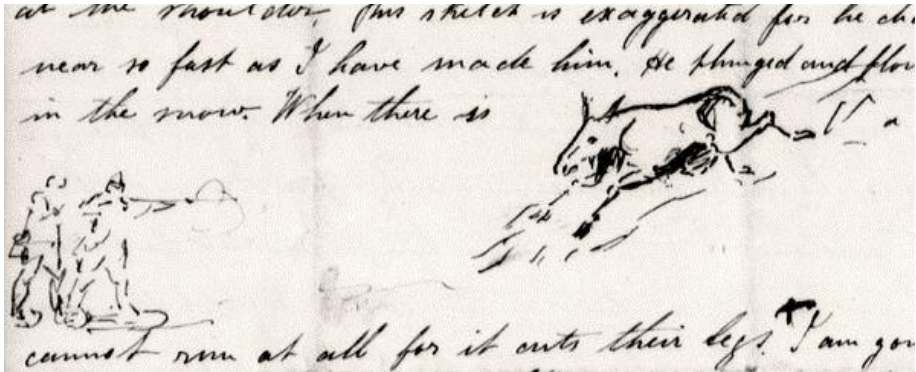 at the shoulder. This sketch is exaggerated for he
near so fast as I have made him. He plunged and
in the snow. When there is a
cannot run at all for it cuts their legs. I am